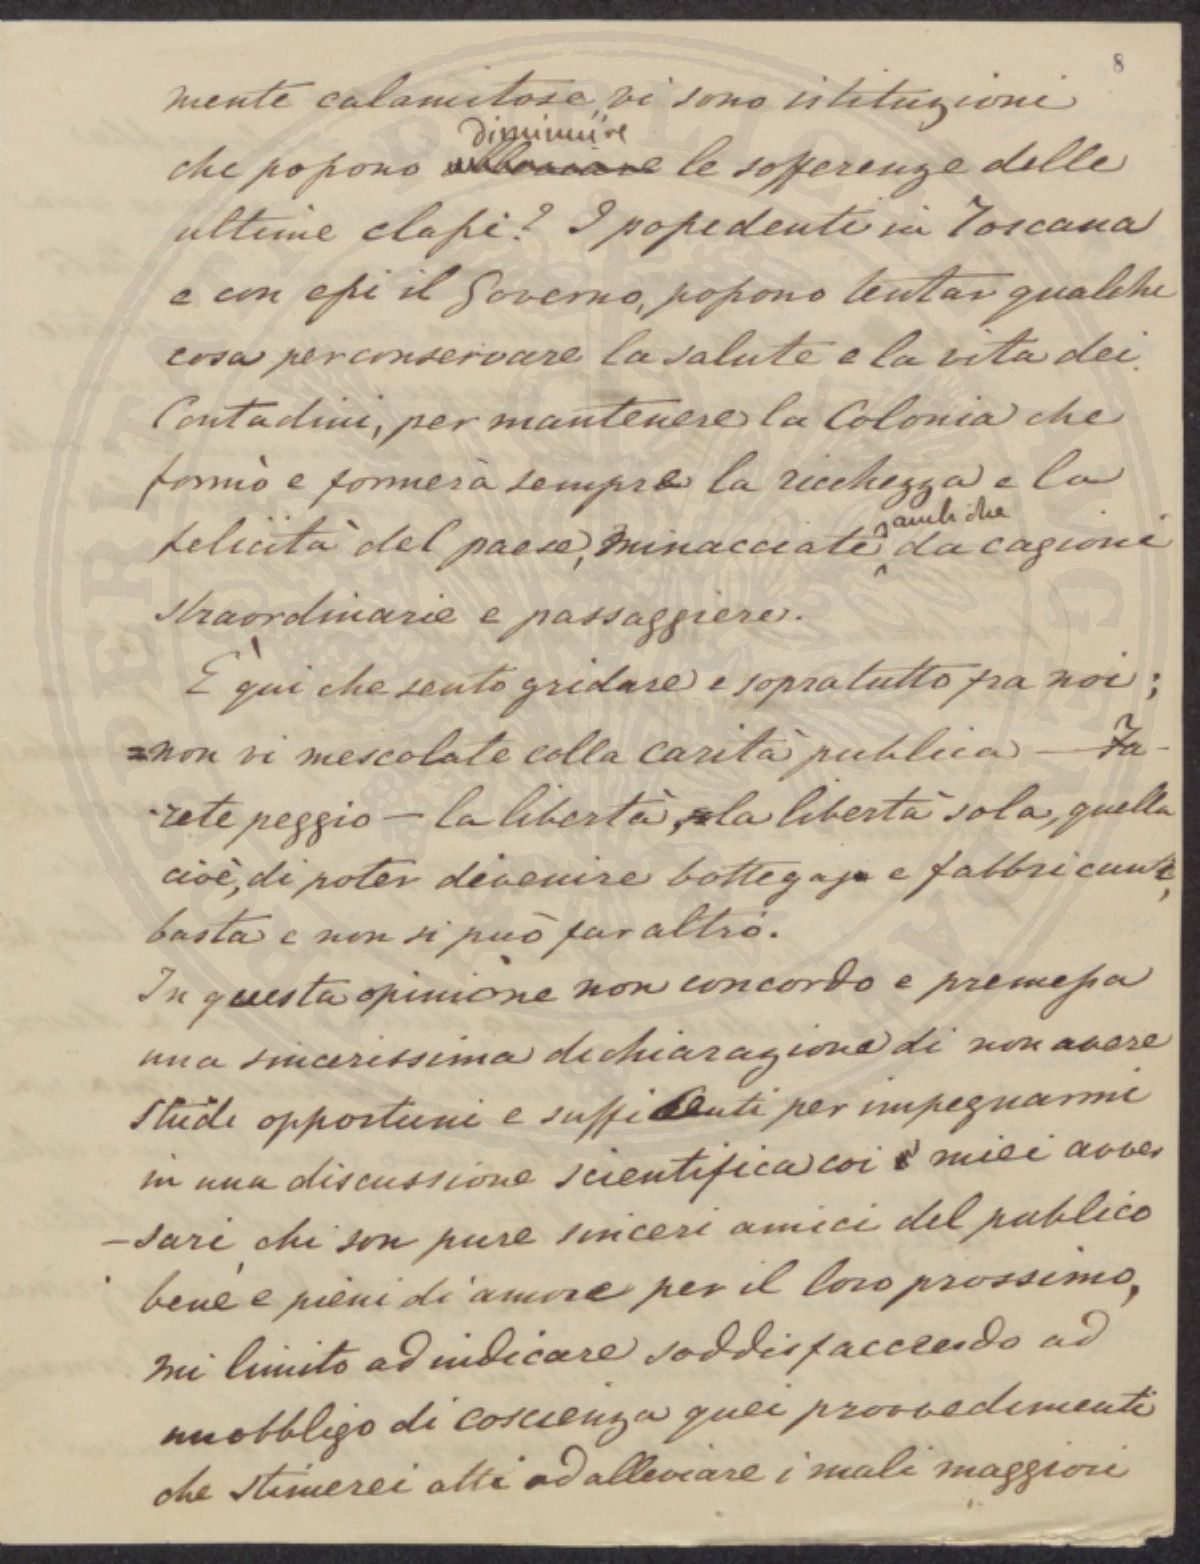 8
mente calamitose vi sono istituzioni
diminuire
che possono le sofferenze delle
ultime classi? I possedenti in Toscana
e con essi il Governo, possono tentar qualche
cosa per conservare la salute e la vita dei
Contadini, per mantenere la Colonia che
formò e formerà sempre la ricchezza e la
anche
felicità del paese, minacciate da cagioni
straordinarie e passaggiere.
È qui che sento gridare e sopratutto fra noi;
=non vi mescolate colla carità publica — Fa-
rete peggio — la libertà, la libertà sola, quella
cioè, di poter devenire bottegaja e fabbricante,
basta e non si può far altro.
In questa opinione non concordo e premessa
una sincerissima dichiarazione di non avere
studi opportuni e sufficenti per impegnarmi
in una discussione scientifica coi miei avver
-sari chi son pure sinceri amici del publico
bene e pieni di amore per il loro prossimo,
mi limito ad indicare soddisfaccendo ad
un obbligo di coscienza quei provvedimenti
che stimerei atti ad alleviare i mali maggiori
SPERITI PUBLICE VINCVNT